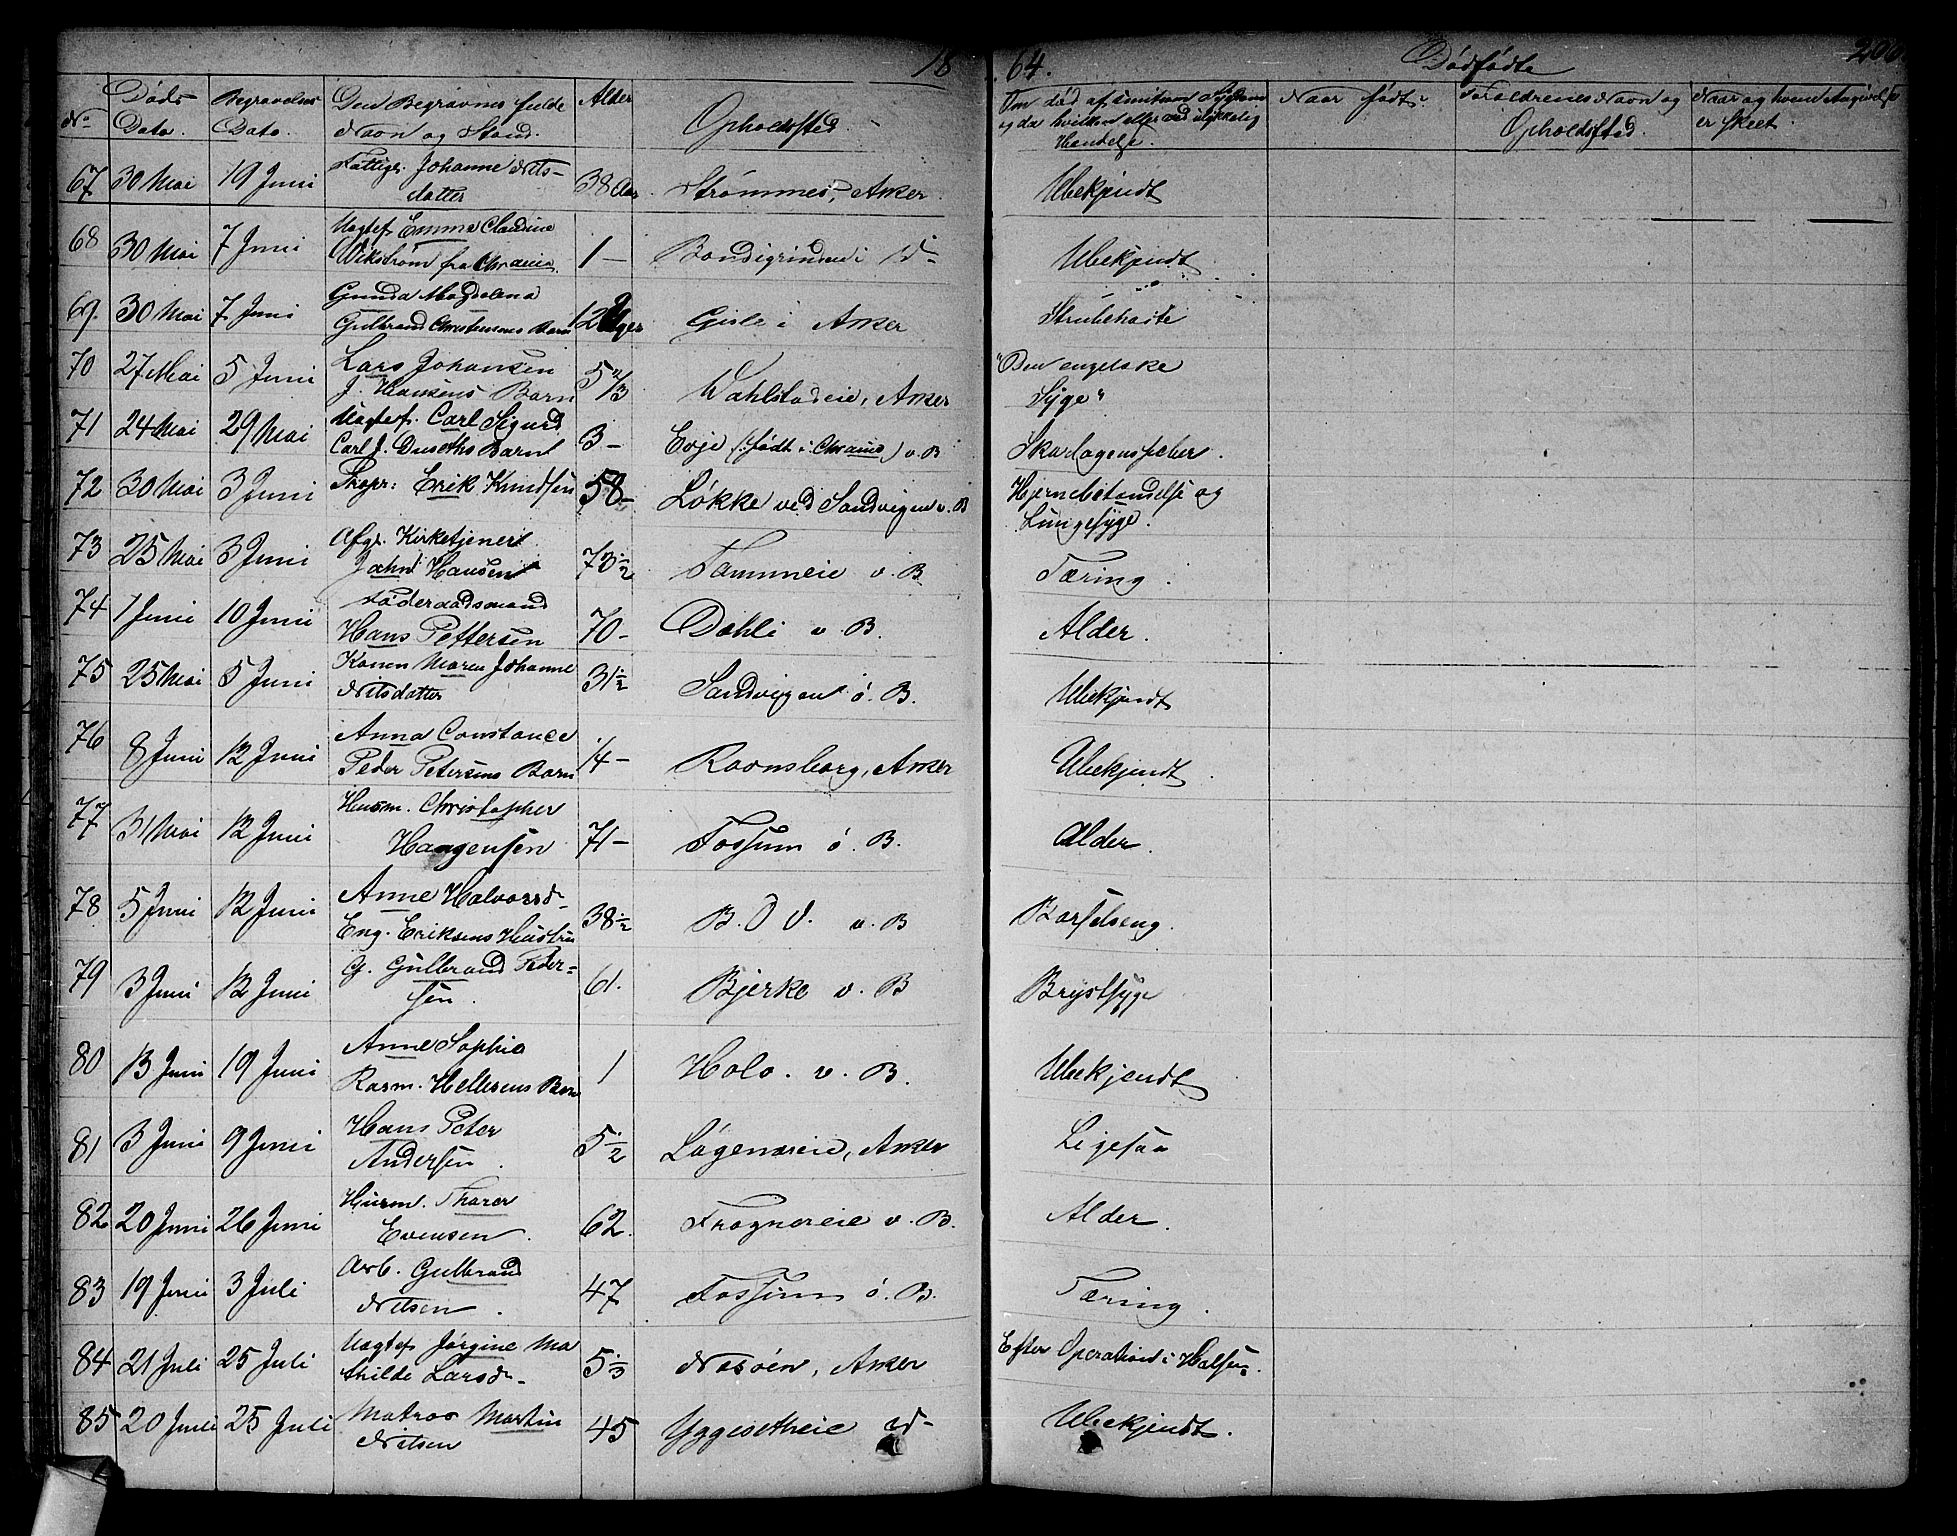 1864.
Dødfødte
200
No
Døds Dato.
Begravelses Dato.
Den Begravnes fulde Navn og Stand.
Alder
Opholdssted.
Om død af smitsom Sygdom og da hvilken eller ved ulykkelig Hændelse.
Naar født.
Forældrenes Navn og Opholdssted.
Naar og hvem Angivelse er skeet.
67 30 Mai 19 Juni Fattigl. Johanne Nils- 38 Aar Strømmes, Asker Ubekjendt
datter
68 30 Mai 7 Juni Uægtef. Emma Claudine
Wikstrøm fra Chrania. 1 – Bondigrinden i d– Ubekjendt
69. 30 Mai 7 Juni Gunda Magdalena
Gulbrand Christensens Barn 12 Uger Gisle i Asker Strubehoste
70 27 Mai 5 Juni Lars Johansen 5 "Den engelske
J. Hansens Barn Wahlstadeie, Asker Syge"
71 24 Mai 29 Mai Uægtef. Carl Sigurd
Carl J. Duseths Barn 3 – Evje (: født i Chrania) v. B Skarlagensfeber.
72 30 Mai 3 Juni Skopr: Erik Knudsen 58 – Løkke ved Sandvigen v. B Hjernebetændelse og
Lungesyge.
73 25 Mai 3 Juni Afg. Kirketjener
Jahn Hansen 73 ½ Tammeie v. B Tæring.
74 1 Juni 10 Juni Føderaadsmand
Hans Pettersen 70 – Dahli v. B. Alder.
75 25 Mai 5 Juni Konen Maren Johanne
Nilsdatter 31 ½ Sandvigen ø. B. Ubekjendt
76 8 Juni 12 Juni Anna Constance
Peder Petersens Barn ¼ – Ravnsborg, Asker Ubekjendt.
77 31 Mai 12 Juni Husm. Christopher
Haagensen 71 – Fossum ø. B. Alder.
78 5 Juni 12 Juni Anne Halvorsd–
Eng. Eriksens Hustru 38 ½ B. O V. v. B Barselseng.
79 3 Juni 12 Juni G. Gulbrand Peder=
sen. 61. Bjerke v. B Brystsyge
80 13 Juni 19 Juni Anne Sophie
Rasm. Hellesens Barn 1 Holo. v. B. Ubekjendt
81 3 Juni 9 Juni Hans Peter
Andersen. 5 ½ Løgenæseie, Asker Ligesaa
82 20 Juni 26 Juni Husm. Tharer
Evensen. 62. Frognereie v. B. Alder.
83 19 Juni 3 Juli Arb. Gulbrand
Nilsen. 47 Fossum ø. B. Tæring.
84 21 Juli 25 Juli Uægtef Jørgine Ma
thilde Larsd– 5 ⅓ Nesøen, Asker Efter Operation i Halsen.
85 20 Juli 25 Juli Matros Martin
Nilsen 45 Yggesetheie d– Ubekjendt.